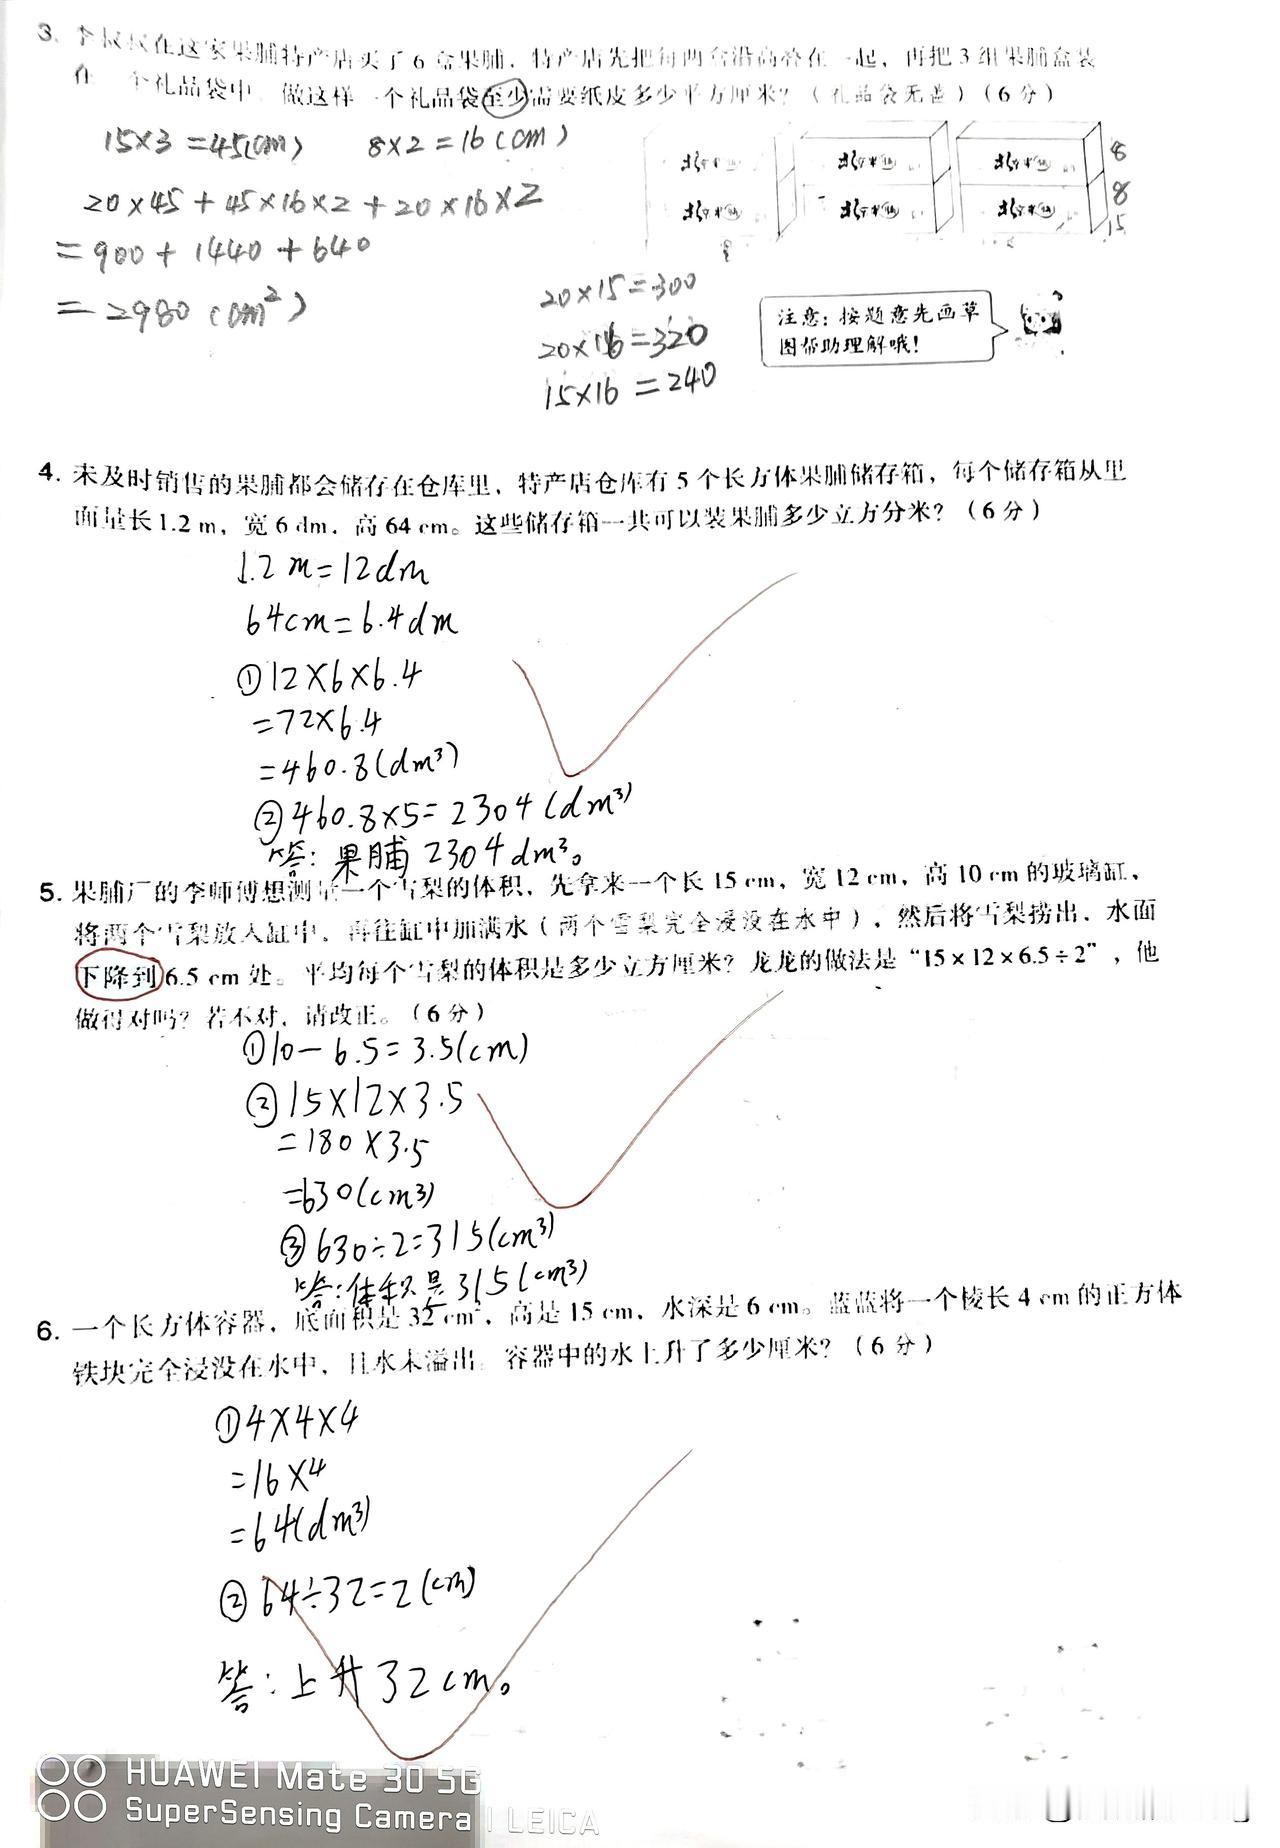 3. 李叔叔在这家果脯特产店买了6盒果脯，特产店先把每两盒沿高叠在一起，再把3组果脯盒装
在一个礼品袋中，做这样一个礼品袋至少需要纸皮多少平方厘米？（礼品袋无盖）（6分）
15×3=45(cm) 8×2=16(cm)
20×45+45×16×2+20×16×2
=900+1440+640
=2980(cm²)
8
8
15
20×15=300
20×16=320
15×16=240
注意：按题意先画草
图帮助理解哦！
4. 未及时销售的果脯都会储存在仓库里，特产店仓库有5个长方体果脯储存箱，每个储存箱从里
面量长1.2 m，宽6 dm，高64 cm。这些储存箱一共可以装果脯多少立方分米？（6分）
1.2m=12dm
64cm=6.4dm
①12×6×6.4
=72×6.4
=460.8(dm³)
②460.8×5=2304(dm³)
答：果脯2304dm³。
5. 果脯厂的李师傅想测量一个雪梨的体积，先拿来一个长15 cm，宽12 cm，高10 cm的玻璃缸，
将两个雪梨放入缸中，再往缸中加满水（两个雪梨完全浸没在水中），然后将雪梨捞出，水面
下降到6.5 cm处。平均每个雪梨的体积是多少立方厘米？龙龙的做法是“15×12×6.5÷2”，他
做得对吗？若不对，请改正。（6分）
①10-6.5=3.5(cm)
②15×12×3.5
=180×3.5
=630(cm³)
③630÷2=315(cm³)
答：体积是315(cm³)
6. 一个长方体容器，底面积是32 cm²，高是15 cm，水深是6 cm。蓝蓝将一个棱长4 cm的正方体
铁块完全浸没在水中，且水未溢出。容器中的水上升了多少厘米？（6分）
①4×4×4
=16×4
=64(dm³)
②64÷32=2(cm)
答：上升32cm。
HUAWEI Mate 30 5G
SuperSensing Camera | LEICA